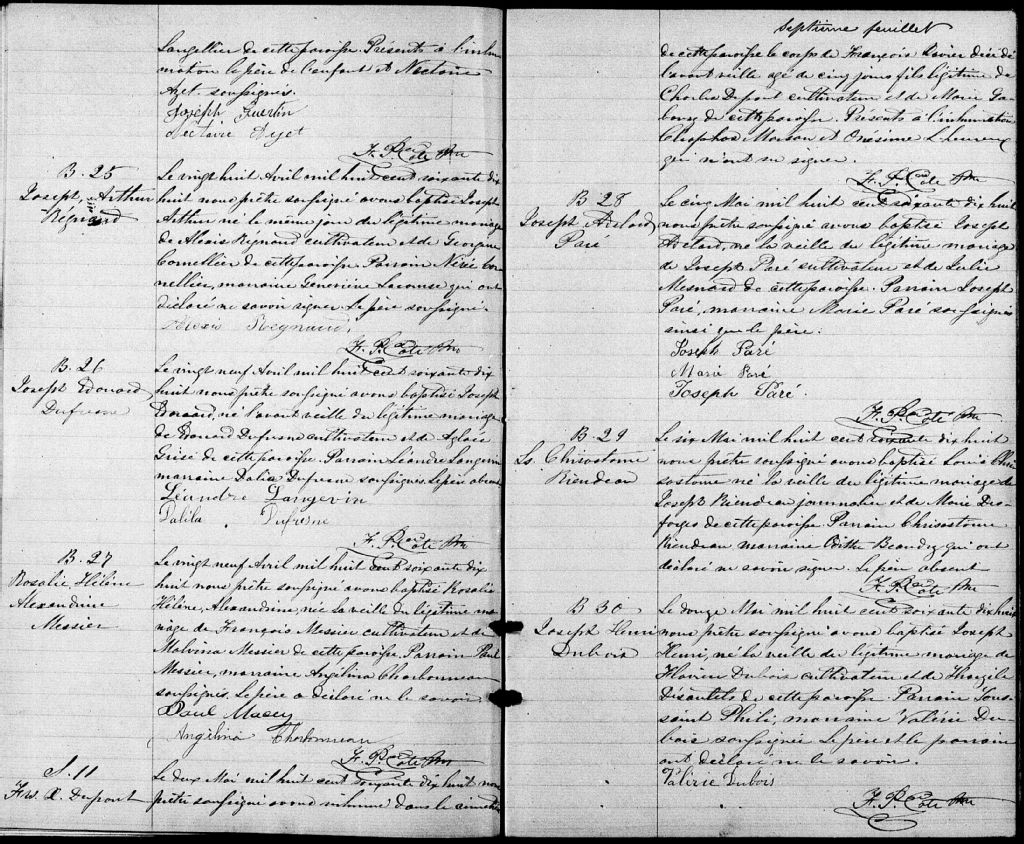 Langellier de cette paroisse. Présents à l'inhu
mation le père de l'enfant et Nectaire
Ayet soussignés.
Joseph Guertin
Nectaire Ayet
F. P. Côté Ptre
B. 25
Joseph, Arthur
Régnard
Le vingt huit Avril mil huit cent soixante dix
huit nous prêtre soussigné avons baptisé Joseph
Arthur né le même jour du légitime mariage
de Alexis Régnard cultivateur et de Georgine
Cornellier de cette paroisse. Parrain Néré Cor
nellier, marraine Geneviève Lacourse qui ont
déclaré ne savoir signer. Le père soussigné.
Alexis Regnaud.
F. P. Côté Ptre
B. 26
Joseph Edouard
Dufresne
Le vingt neuf Avril mil huit cent soixante dix
huit nous prêtre soussigné avons baptisé Joseph
Edouard, né l'avant veille du légitime mariage
de Edouard Dufresne cultivateur et de Aglaée
Grisé de cette paroisse. Parrain Léandre Langevin
marraine Dalila Dufresne soussignés. Le père absent
Léandre Langevin
Dalila Dufresne
F. P. Côté Ptre
B. 27
Rosalie, Hélène
Alexandrine
Messier
Le vingt neuf Avril mil huit cent soixante dix
huit nous prêtre soussigné avons baptisé Rosalie
Hélène, Alexandrine, née la veille du légitime ma
riage de François Messier cultivateur et de
Malvina Messier de cette paroisse. Parrain Paul
Messier, marraine Angélina Charbonneau
soussignés. Le père a déclaré ne le savoir
Paul Macey
Angélina Charbonneau
F. P. Côté Ptre
S. 11
F. X. Dupont
Le deux Mai mil huit cent soixante dix huit nous
prêtre soussigné avons inhumé dans le cimetière
Septième feuillet
de cette paroisse le corps de François Xavier décédé
l'avant veille agé de cinq jours fils légitime de
Charles Dupont cultivateur et de Marie
de cette paroisse. Présents à l'inhumation
Cléophas Morsan et Onésime L'heureux
qui n'ont su signer.
F. P. Côté Ptre
B 28
Joseph Avelard
Paré
Le cinq Mai mil huit cent soixante dix huit
nous prêtre soussigné avons baptisé Joseph
Avelard, né la veille de légitime mariage
de Joseph Paré cultivateur et de Julie
Mesnard de cette paroisse. Parrain Joseph
Paré, marraine Marie Paré soussignés
ainsi que le père.
Joseph Paré
Marie Paré
Joseph Paré.
F. P. Côté Ptre
B. 29
Ls. Chrisostome
Riendeau
Le six Mai mil huit cent soixante dix huit
nous prêtre soussigné avons baptisé Louis Chri
sostome né la veille du légitime mariage de
Joseph Riendeau journalier et de Marie Des
forges de cette paroisse. Parrain Chrisostome
Riendeau marraine Odithe Beaudry qui ont
déclaré ne savoir signer. Le père absent
F. P. Côté Ptre
B 30
Joseph Henri
Dubois
Le douze Mai mil huit cent soixante dix huit
nous prêtre soussigné avons baptisé Joseph
Henri, né la veille de légitime mariage de
Flavien Dubois cultivateur et de Tharzile
de cette paroisse. Parrain Tous-
saint Philie, marraine Valérie Du-
bois soussignée. Le père et le parrain
ont déclaré ne le savoir.
Valérie Dubois
F. P. Côté Ptre